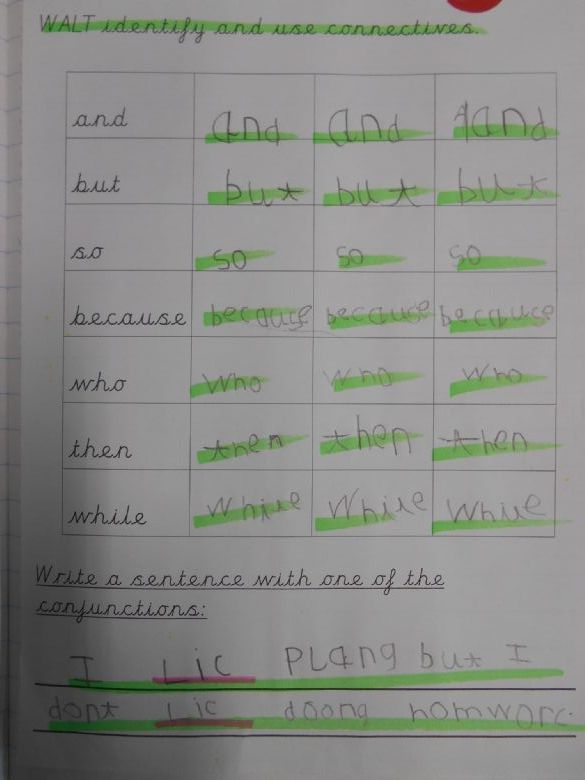 WALT identify and use connectives.
and and and and
but but but but
so so so so
because because because because
who who who who
then then then then
while while while while
Write a sentence with one of the
conjunctions:
I Lic PLang but I
dont Lic doong homworc.